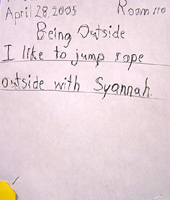 April 28, 2005 Room 110
Being Outside
I like to jump rope
outside with Syannah.